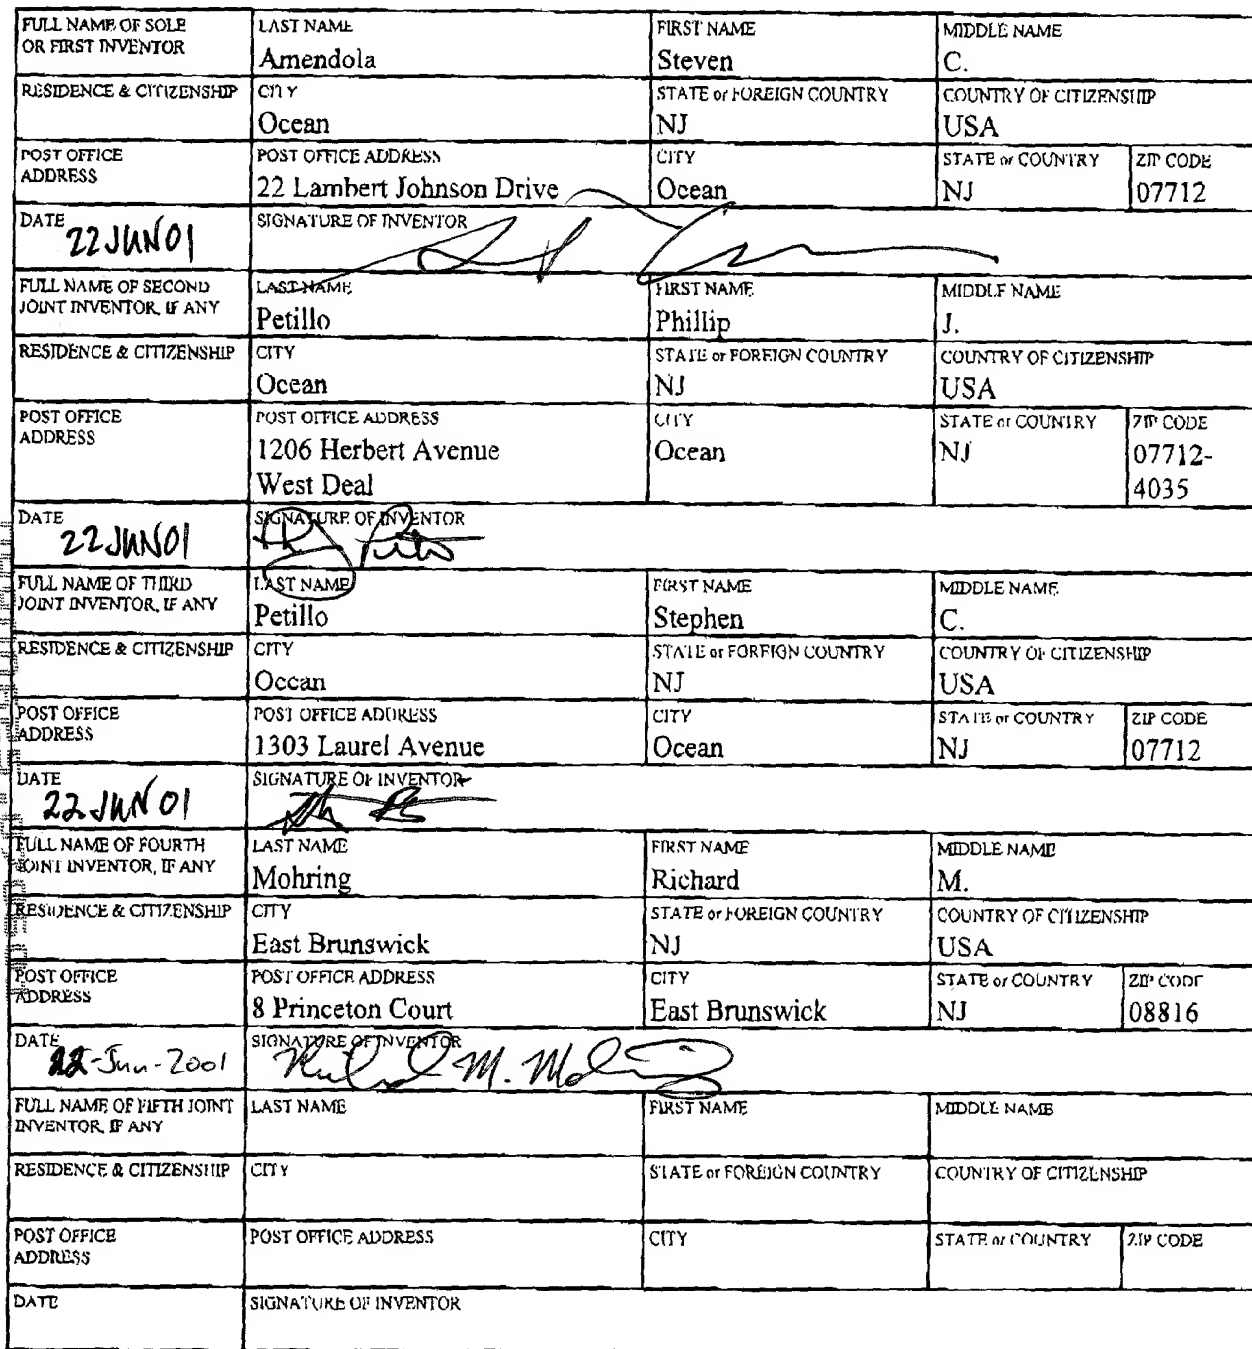 FULL NAME OF SOLE OR FIRST INVENTOR LAST NAME Amendola FIRST NAME Steven MIDDLE NAME C.
RESIDENCE & CITIZENSHIP CITY Ocean STATE or FOREIGN COUNTRY NJ COUNTRY OF CITIZENSHIP USA
POST OFFICE ADDRESS POST OFFICE ADDRESS 22 Lambert Johnson Drive CITY Ocean STATE or COUNTRY NJ ZIP CODE 07712
DATE 22JUN01 SIGNATURE OF INVENTOR
FULL NAME OF SECOND JOINT INVENTOR, IF ANY LAST NAME Petillo FIRST NAME Phillip MIDDLE NAME J.
RESIDENCE & CITIZENSHIP CITY Ocean STATE or FOREIGN COUNTRY NJ COUNTRY OF CITIZENSHIP USA
POST OFFICE ADDRESS POST OFFICE ADDRESS 1206 Herbert Avenue West Deal CITY Ocean STATE or COUNTRY NJ ZIP CODE 07712-4035
DATE 22JUN01 SIGNATURE OF INVENTOR
FULL NAME OF THIRD JOINT INVENTOR, IF ANY LAST NAME Petillo FIRST NAME Stephen MIDDLE NAME C.
RESIDENCE & CITIZENSHIP CITY Ocean STATE or FOREIGN COUNTRY NJ COUNTRY OF CITIZENSHIP USA
POST OFFICE ADDRESS POST OFFICE ADDRESS 1303 Laurel Avenue CITY Ocean STATE or COUNTRY NJ ZIP CODE 07712
DATE 22JUN01 SIGNATURE OF INVENTOR
FULL NAME OF FOURTH JOINT INVENTOR, IF ANY LAST NAME Mohring FIRST NAME Richard MIDDLE NAME M.
RESIDENCE & CITIZENSHIP CITY East Brunswick STATE or FOREIGN COUNTRY NJ COUNTRY OF CITIZENSHIP USA
POST OFFICE ADDRESS POST OFFICE ADDRESS 8 Princeton Court CITY East Brunswick STATE or COUNTRY NJ ZIP CODE 08816
DATE 22-Jun-2001 SIGNATURE OF INVENTOR Richard M. Mohring
FULL NAME OF FIFTH JOINT INVENTOR, IF ANY LAST NAME FIRST NAME MIDDLE NAME
RESIDENCE & CITIZENSHIP CITY STATE or FOREIGN COUNTRY COUNTRY OF CITIZENSHIP
POST OFFICE ADDRESS POST OFFICE ADDRESS CITY STATE or COUNTRY ZIP CODE
DATE SIGNATURE OF INVENTOR